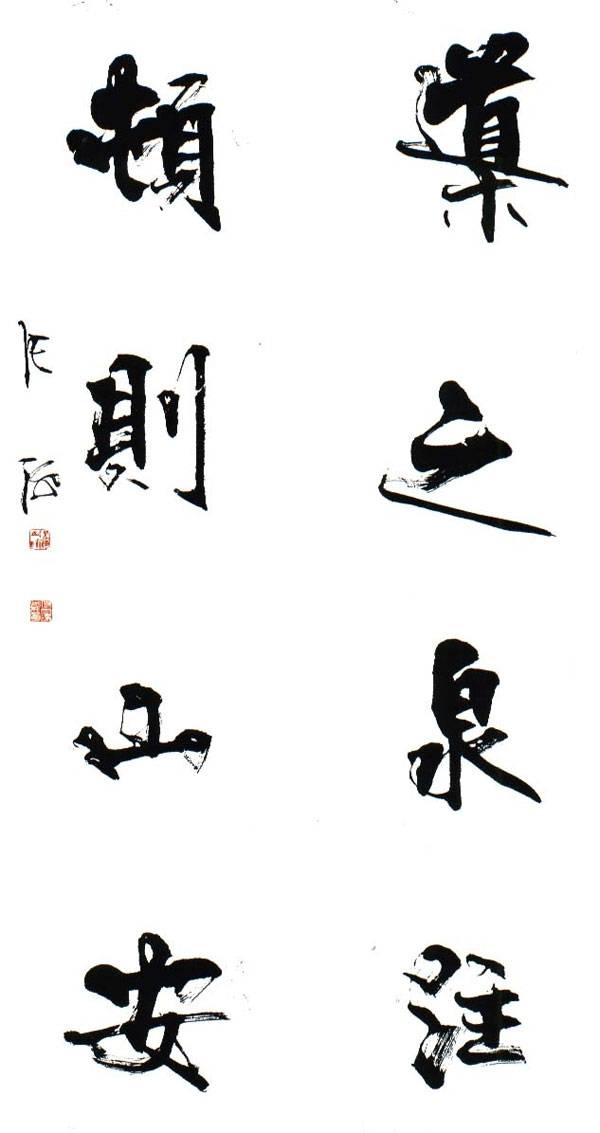 導之泉注
頓則山安
张海